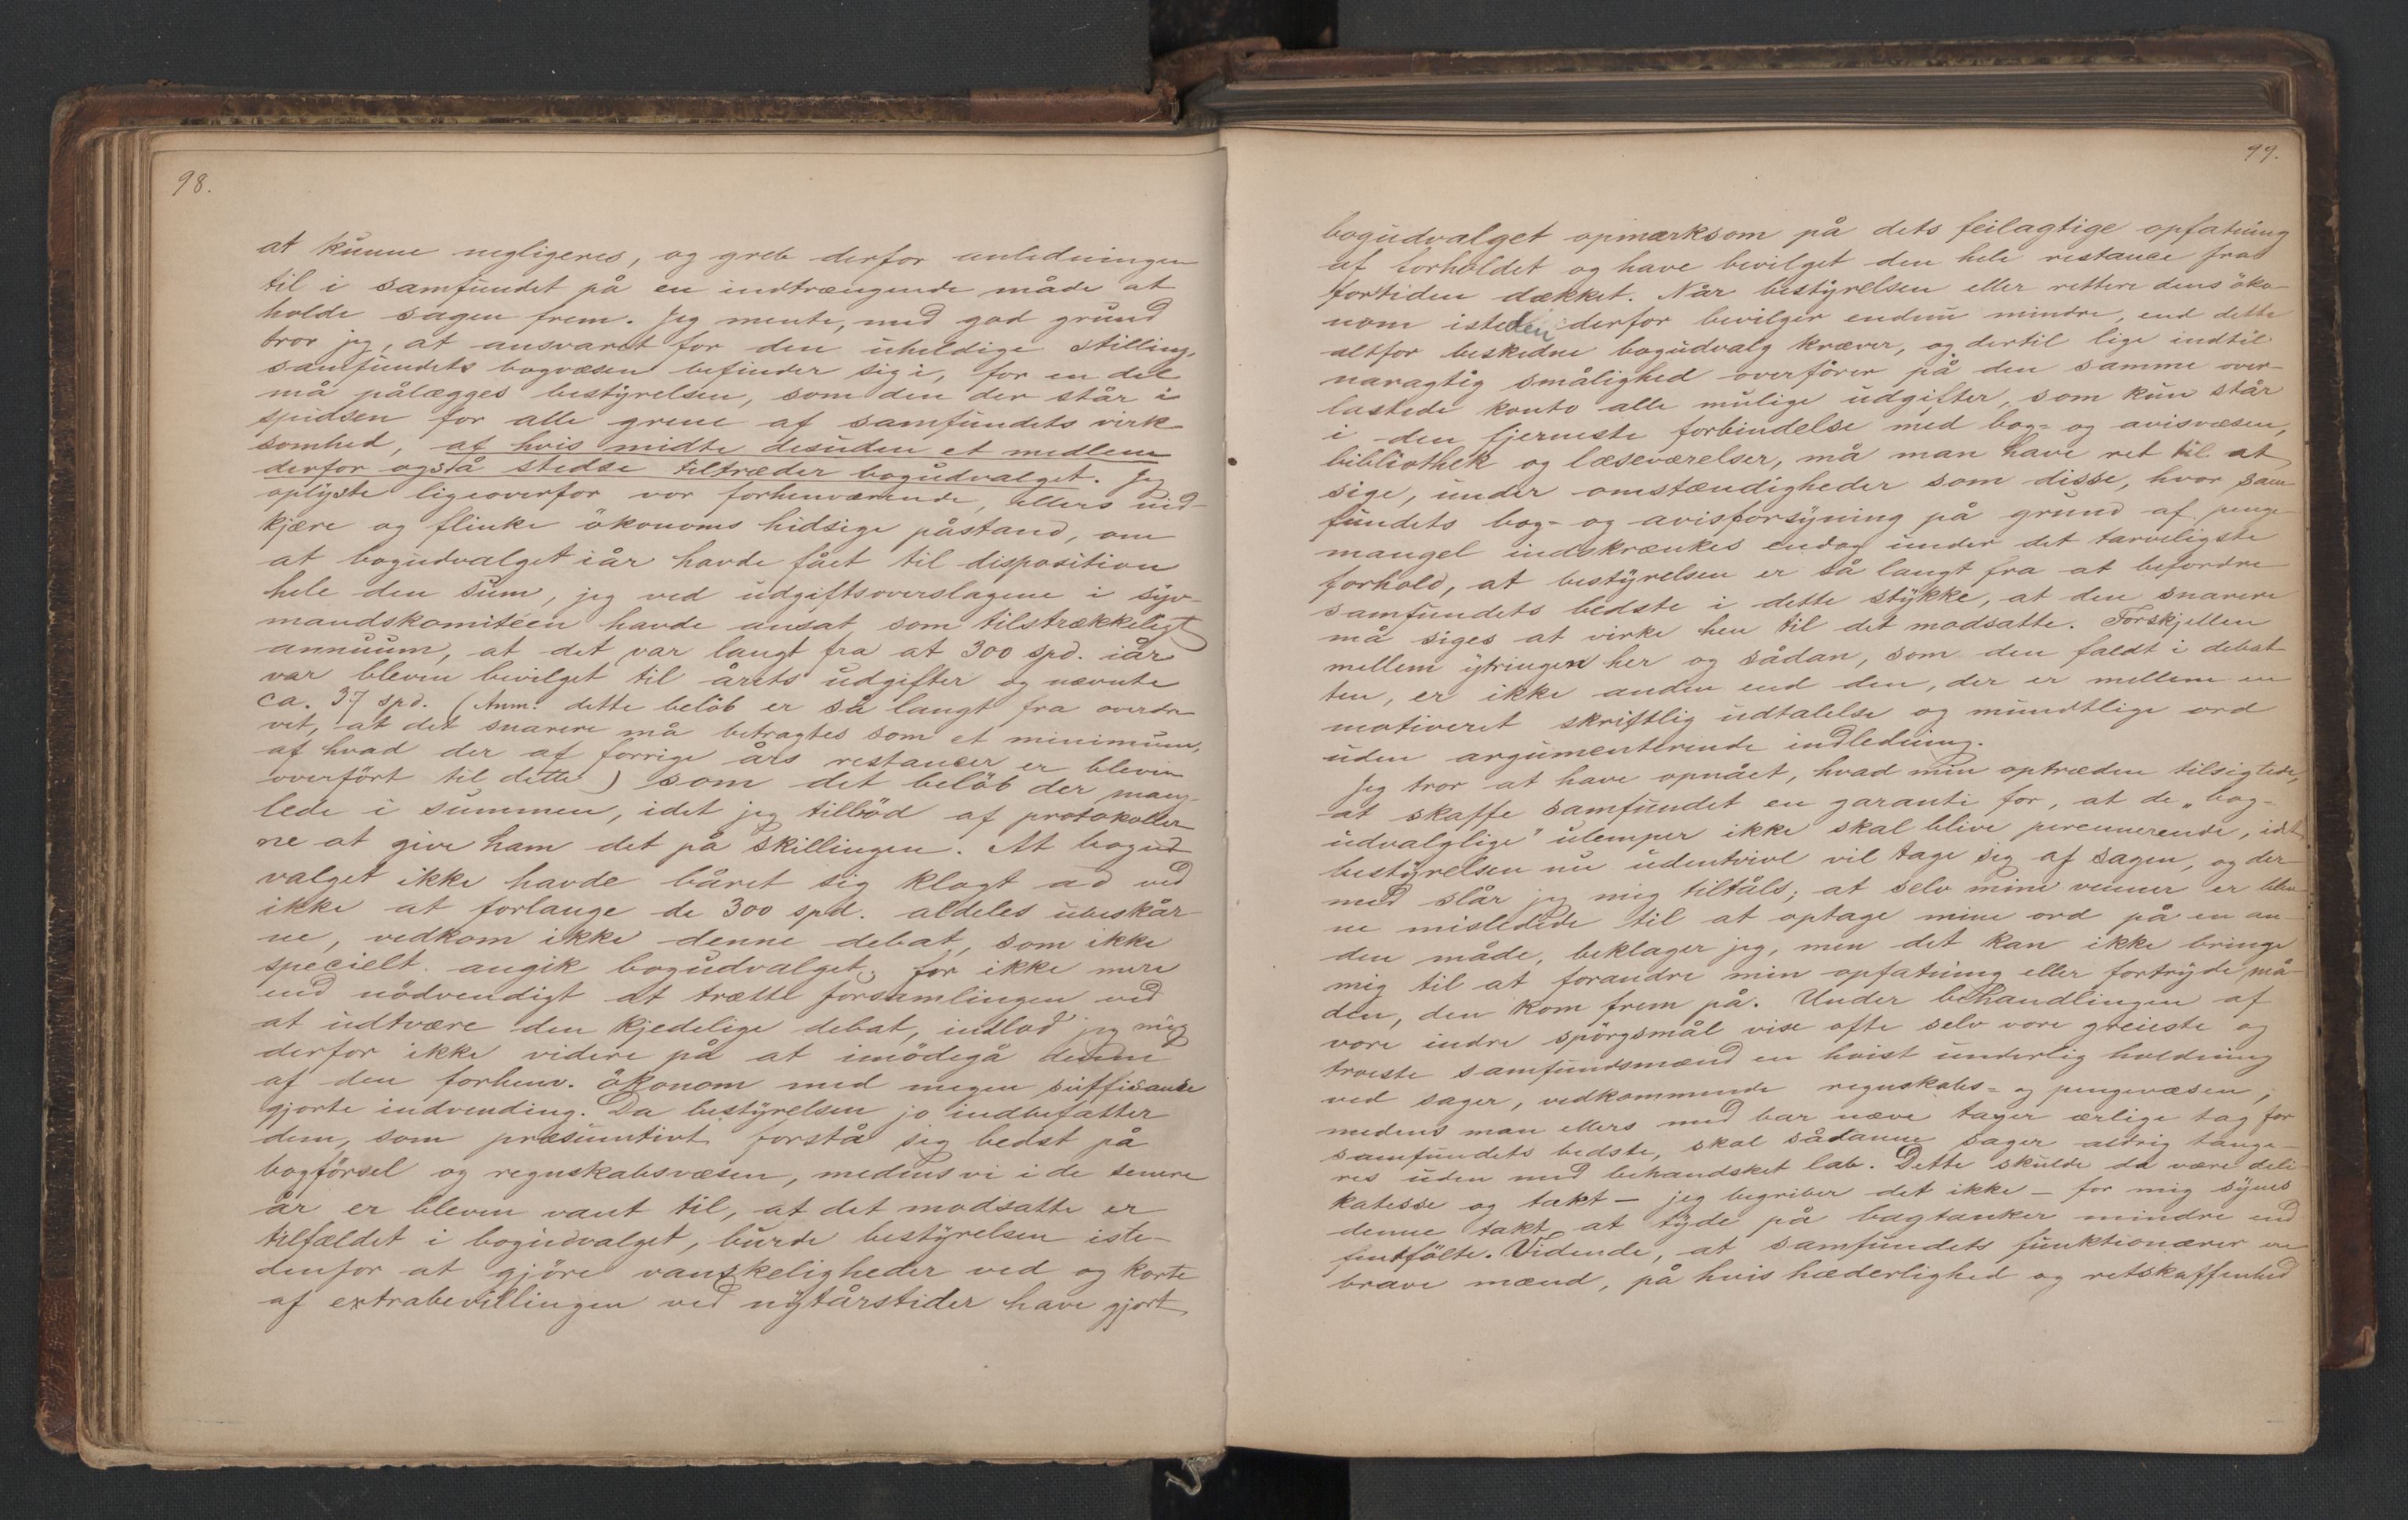 98.
at kunne negligeres, og greb derfor anledningen
til i samfundet på en indtrængende måde at
holde sagen frem. Jeg mente, med god grund
tror jeg, at ansvaret for den uheldige stilling,
samfundets bogvæsen befinder sig i, for en del
må pålægges bestyrelsen, som den der står i
spidsen for alle grene af samfundets virk-
somhed, af hvis midte desuden et medlem
derfor også stedse tiltræder bogudvalget. Jeg
oplyste ligeoverfor vor forhenværende, ellers nid-
kjære og flinke ökonoms hidsige påstand, om
at bogudvalget iår havde fået til disposition
hele den sum, jeg ved udgiftsoverslagene i syv-
mandskomitéen havde ansat som tilstrækkeligt
annuum, at det var langt fra at 300 spd. iår
var bleven bevilget til årets udgifter og nævnte
ca. 37 spd. (Anm: dette belöb er så langt fra overdre
vet, at det snarere må betragtes som et minimum,
af hvad der af forrige års restancer er bleven
overfört til dette) som det belöb der mang-
lede i summen, idet jeg tilböd af protokoller
ne at give ham det på skillingen. At bogud
valget ikke havde båret sig klogt ad ved
ikke at forlange de 300 spd. aldeles ubeskår-
ne, vedkom ikke denne debat, som ikke
specielt angik bogudvalget; for ikke mere
end nödvendigt at trætte forsamlingen ved
at udtvære den kjedelige debat, indlod jeg mig
derfor ikke videre på at imödegå denne
af den forhenv. ökonom med megen suffisance
gjorte indvending. Da bestyrelsen jo indbefatter
dem, som præsumtivt forstå sig bedst på
bogförsel og regnskabsvæsen, medens vi i de senere
år er bleven vant til, at det modsatte er
tilfældet i bogudvalget, burde bestyrelsen iste-
denfor at gjöre vanskeligheder ved og korte
af extrabevillingen ved nytårstider have gjort
99.
bogudvalget opmærksom på dets feilagtige opfatning
af forholdet og have bevilget den hele restance fra
fortiden dækket. Når bestyrelsen eller rettere dens öko-
nom isteden derfor bevilger endnu mindre, end dette
altfor beskedne bogudvalg kræver, og dertil lige indtil
naragtig smålighed overförer på den samme over-
lastede konto alle mulige udgifter, som kun står
i den fjerneste forbindelse med bog- og avisvæsen,
bibliothek og læseværelser, må man have ret til at
sige, under omstændigheder som disse, hvor sam-
fundets bog- og avisforsyning på grund af penge
mangel indskrænkes endog under det tarveligste
forhold, at bestyrelsen er så langt fra at befordre
samfundets bedste i dette stykke, at den snarere
må siges at virke hen til det modsatte. Forskjellen
mellem ytringen her og sådan, som den faldt i debat
ten, er ikke anden end den, der er mellem en
motiveret skriftlig udtalelse og mundtlige ord
uden argumenterende indledning.
Jeg tror at have opnået, hvad min optræden tilsigtede,
at skaffe samfundet en garanti for, at de „bog-
udvalglige" ulemper ikke skal blive perennerende, idet
bestyrelsen nu udentvivl vil tage sig af sagen, og der-
med slår jeg mig tiltåls; at selv mine venner er blev
ne misledede til at optage mine ord på en an-
den måde, beklager jeg, men det kan ikke bringe
mig til at forandre min opfatning eller fortryde må-
den, den kom frem på. Under behandlingen af
vore indre spörgsmål vise ofte selv vore greieste og
troeste samfundsmænd en höist underlig holdning
ved sager, vedkommende regnskabs- og pengevæsen;
medens man ellers med bar næve tager ærlige tag for
samfundets bedste, skal sådanne sager aldrig tange-
res uden med behandsket lab. Dette skulde da være deli
katesse og takt – jeg begriber det ikke – for mig synes
denne takt at tyde på bagtanker mindre end
fintfölte. Vidende, at samfundets funktionærer er
brave mænd, på hvis hæderlighed og retskaffenhed